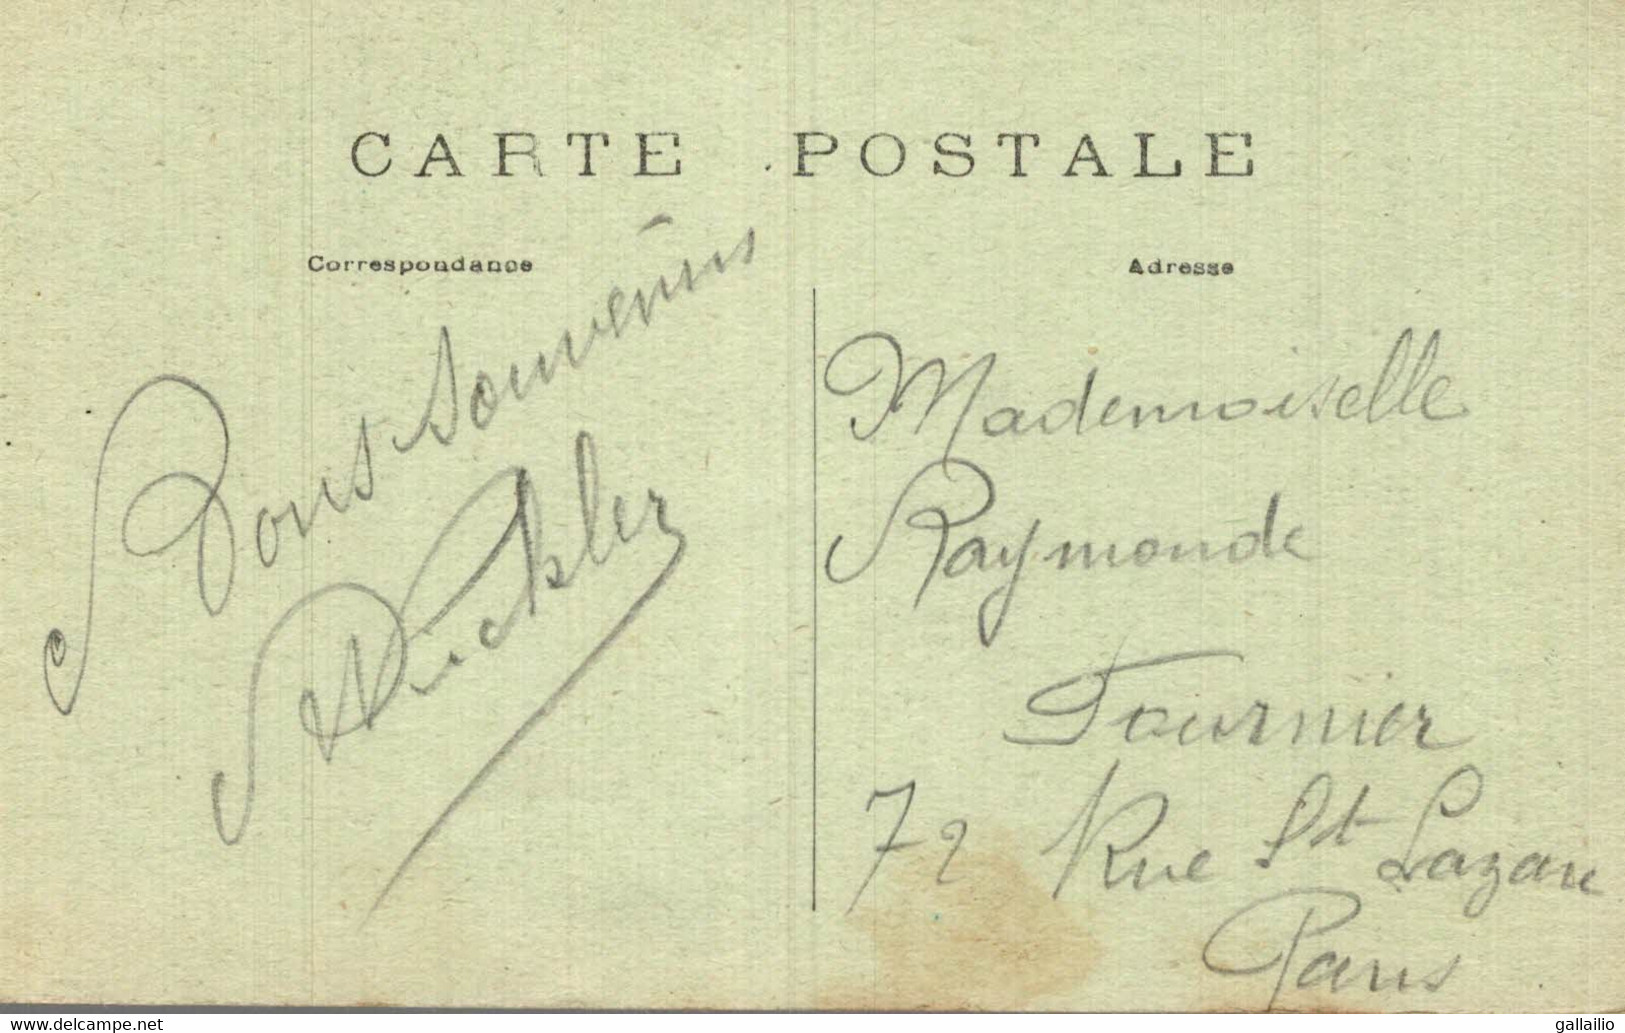 CARTE POSTALE
Correspondance
Adresse
Bons souvenirs
Mademoiselle
Raymonde
Fournier
72 Rue St Lazare
Paris
delcampe.net
gallailio